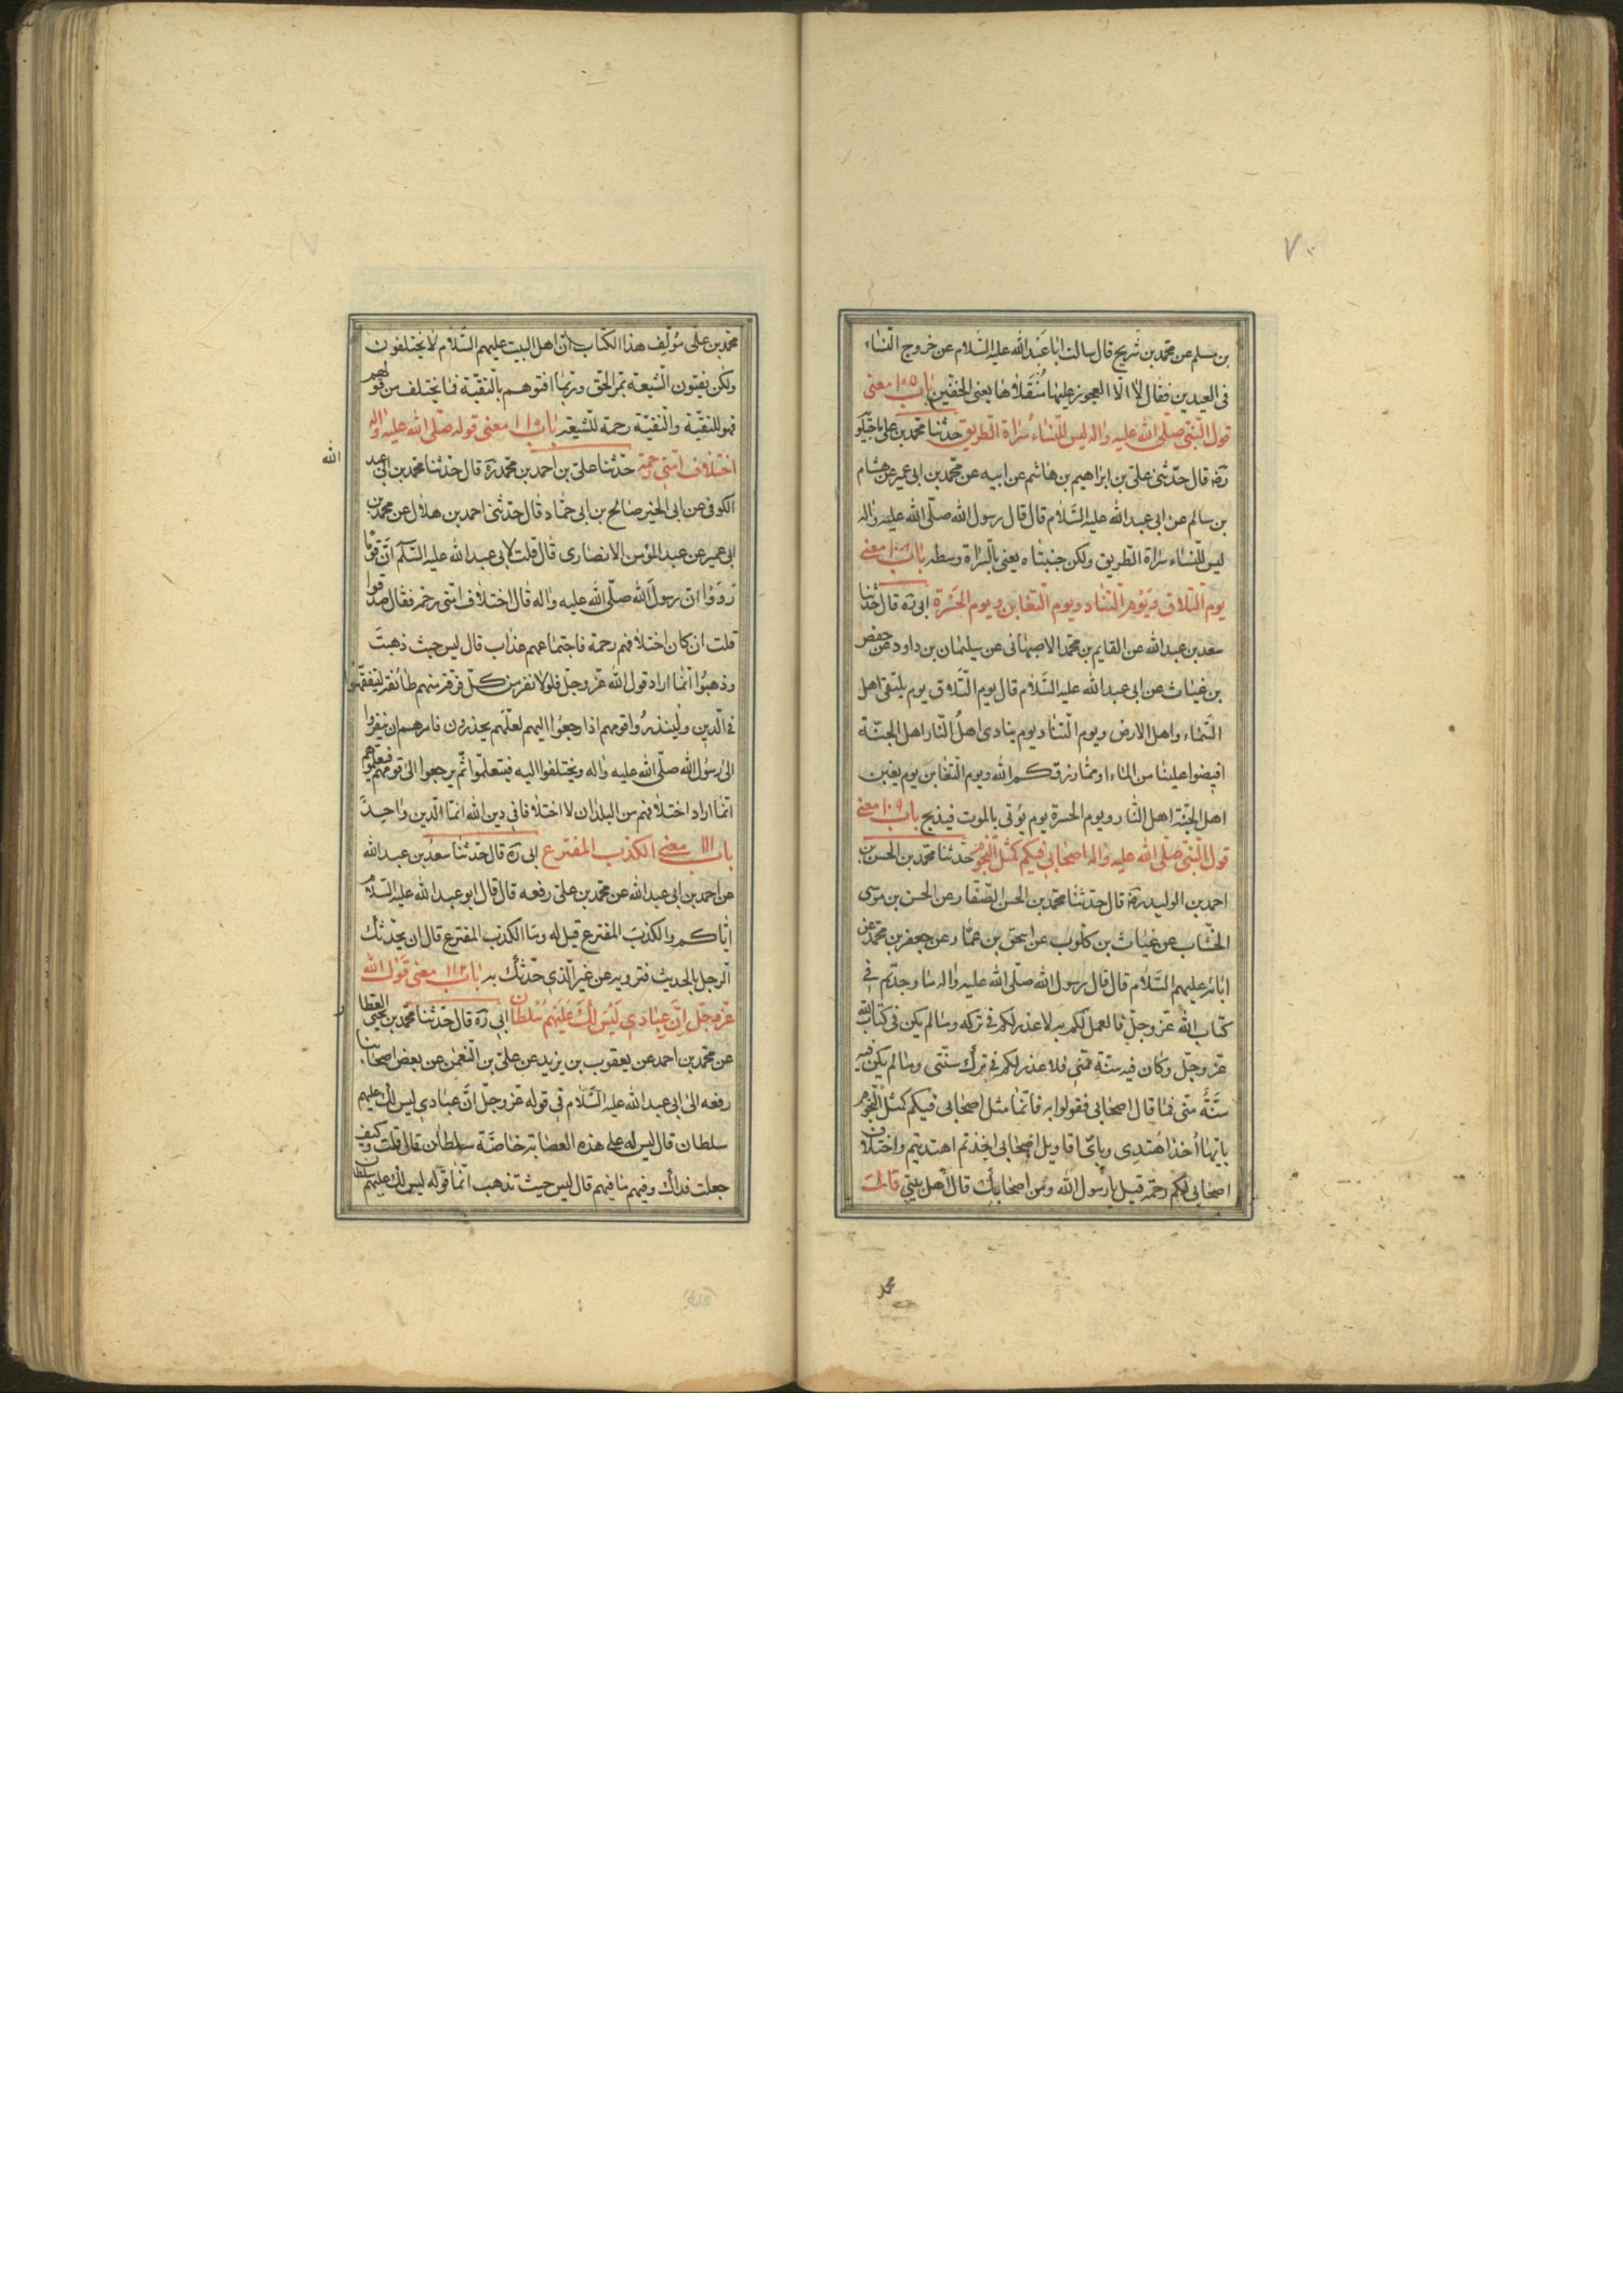 ٧٠
بن مسلم عن محمد بن شريح قال سالت ابا عبد الله عليه السلام عن خروج النساء
فى العيدين فقال لا الا العجوز عليها منقلاها يعنى الخفين باب معنى
قول النبى صلى الله عليه واله ليس للنساء سراة الطريق حدثنا محمد بن على ماجيلو
رضه قال حدثنى على بن ابراهيم بن هاشم عن ابيه عن محمد بن ابى عمير عن هشام
بن سالم عن ابى عبد الله عليه السلام قال قال رسول الله صلى الله عليه واله
ليس للنساء سراة الطريق ولكن جنبتاه يعنى بالسراة وسطه باب ١٠٨ معنى
يوم التلاق ويوم التناد ويوم التغابن ويوم الحسرة ابى ره قال حدثنا
سعد بن عبد الله عن القاسم بن محمد الاصبهانى عن سليمان بن داود عن حفص
بن غياث عن ابى عبد الله عليه السلام قال يوم التلاق يوم يلتقى اهل
السماء واهل الارض ويوم التناد يوم ينادى اهل النار اهل الجنة
افيضوا علينا من الماء او مما رزقكم الله ويوم التغابن يوم يغبن
اهل الجنة اهل النار ويوم الحسرة يوم يؤتى بالموت فيذبح باب ١٠٩ معنى
قول النبى صلى الله عليه واله اصحابى فيكم كمثل النجوم حدثنا محمد بن الحسن بن
احمد بن الوليد رضه قال حدثنا محمد بن الحسن الصفار عن الحسن بن موسى
الخشاب عن غياث بن كلوب عن اسحق بن عمار عن جعفر بن محمد عن
ابائه عليهم السلام قال قال رسول الله صلى الله عليه واله ما وجدتم فى
كتاب الله عز وجل فالعمل لكم به لا عذر لكم فى تركه وما لم يكن فى كتاب الله
عز وجل وكان فيه سنة منى فلا عذر لكم فى ترك سنتى وما لم يكن فيه
سنة منى فما قال اصحابى فقولوا به فانما مثل اصحابى فيكم كمثل النجوم
بايها اخذ اهتدى وباى اقاويل اصحابى اخذتم اهتديتم واختلاف
اصحابى لكم رحمة قيل يا رسول الله ومن اصحابك قال اهل بيتى قال
محمد
محمد بن على مؤلف هذا الكتاب ان اهل البيت عليهم السلام لا يختلفون
ولكن يفتون الشيعة بمر الحق وربما افتوهم بالتقية فما يختلف من قولهم
فهو للتقية والتقية رحمة للشيعة باب معنى قوله صلى الله عليه واله
اختلاف امتى رحمة حدثنا على بن احمد بن محمد ره قال حدثنا محمد بن ابى عبد الله
الكوفى عن ابى الخير صالح بن ابى حماد قال حدثنى احمد بن هلال عن محمد بن
ابى عمير عن عبد المؤمن الانصارى قال قلت لابى عبد الله عليه السلم ان قوما
رووا ان رسول الله صلى الله عليه واله قال اختلاف امتى رحمة فقال صدقوا
قلت ان كان اختلافهم رحمة فاجتماعهم عذاب قال ليس حيث ذهبت
وذهبوا انما اراد قول الله عز وجل فلولا نفر من كل فرقة منهم طائفة ليتفقهوا
فى الدين ولينذروا قومهم اذا رجعوا اليهم لعلهم يحذرون فامرهم ان ينفروا
الى رسول الله صلى الله عليه واله ويختلفوا اليه فيتعلموا ثم يرجعوا الى قومهم فيعلموهم
انما اراد اختلافهم من البلدان لا اختلافا فى دين الله انما الدين واحد
باب ١١١ معنى الكذب المفترع ابى ره قال حدثنا سعد بن عبد الله
عن احمد بن ابى عبد الله عن محمد بن على رفعه قال قال ابو عبد الله عليه السلام
اياكم والكذب المفترع قيل له وما الكذب المفترع قال ان يحدثك
الرجل بالحديث فترويه عن غير الذى حدثك به باب ١١٢ معنى قول الله
عز وجل ان عبادى ليس لك عليهم سلطان ابى ره قال حدثنا محمد بن يحيى العطار
عن محمد بن احمد عن يعقوب بن يزيد عن على بن النعمن عن بعض اصحابنا
رفعه الى ابى عبد الله عليه السلام فى قوله عز وجل ان عبادى ليس لك عليهم
سلطان قال ليس له على هذه العصابة خاصة سلطان قال قلت وكيف
جعلت فداك وفيهم ما فيهم قال ليس حيث تذهب انما قوله ليس لك عليهم سلطان